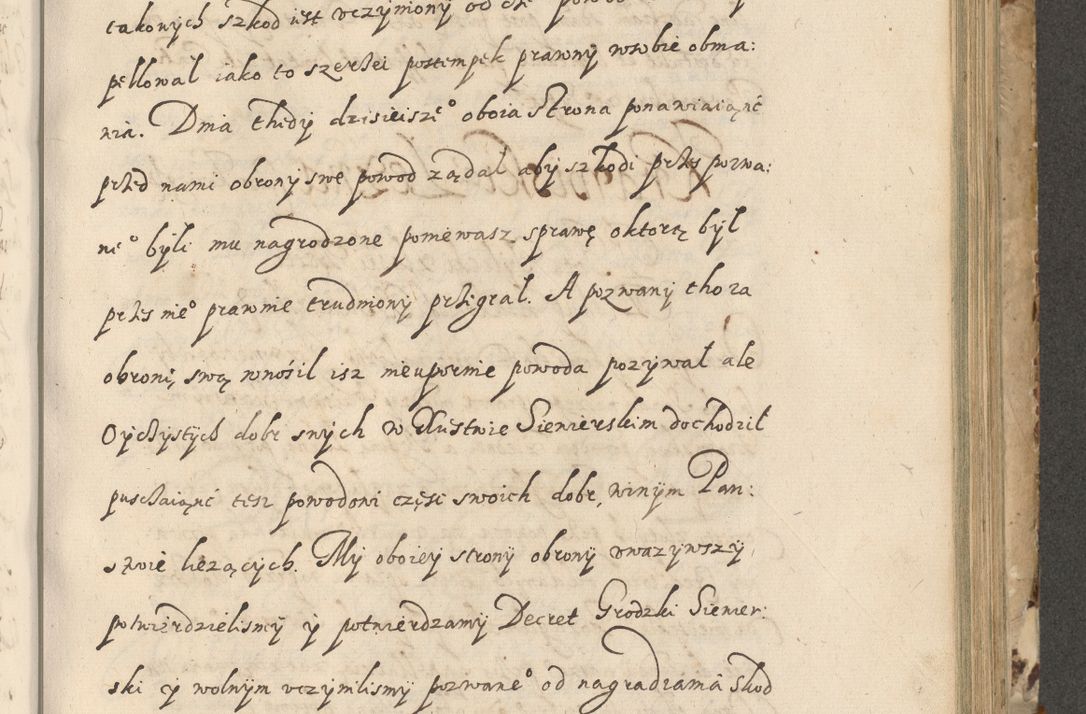 takowych szkod iest vczyniony od
pellował iako to szerzei postempek prawny wsobie obma:
wia. Dnia thedy dzisieisze° oboia strona ponawiaiąnć
przed nami obrony swe powod żądał aby szkodi przes pozwa:
ne° byli mu nagrodzone poniewasz sprawę oktorą był
przes nie° prawnie trudniony przegrał. A pozwany tho za
obronę swą wnosił isz nieupornie powoda pozywał ale
Oyczystych dobr swych w Xiustwie Siewierskim dochodził
pusczaiąnć tesz powodowi częsc swoich dobr, winym Pan:
stwie lieżących. My oboiey strony obrony vwazywszy
potwierdzielismy y potwierdzamy Decret Grodzki Siewier:
ski y wolnym vczynilismy pozwane° od nagradzania szkod